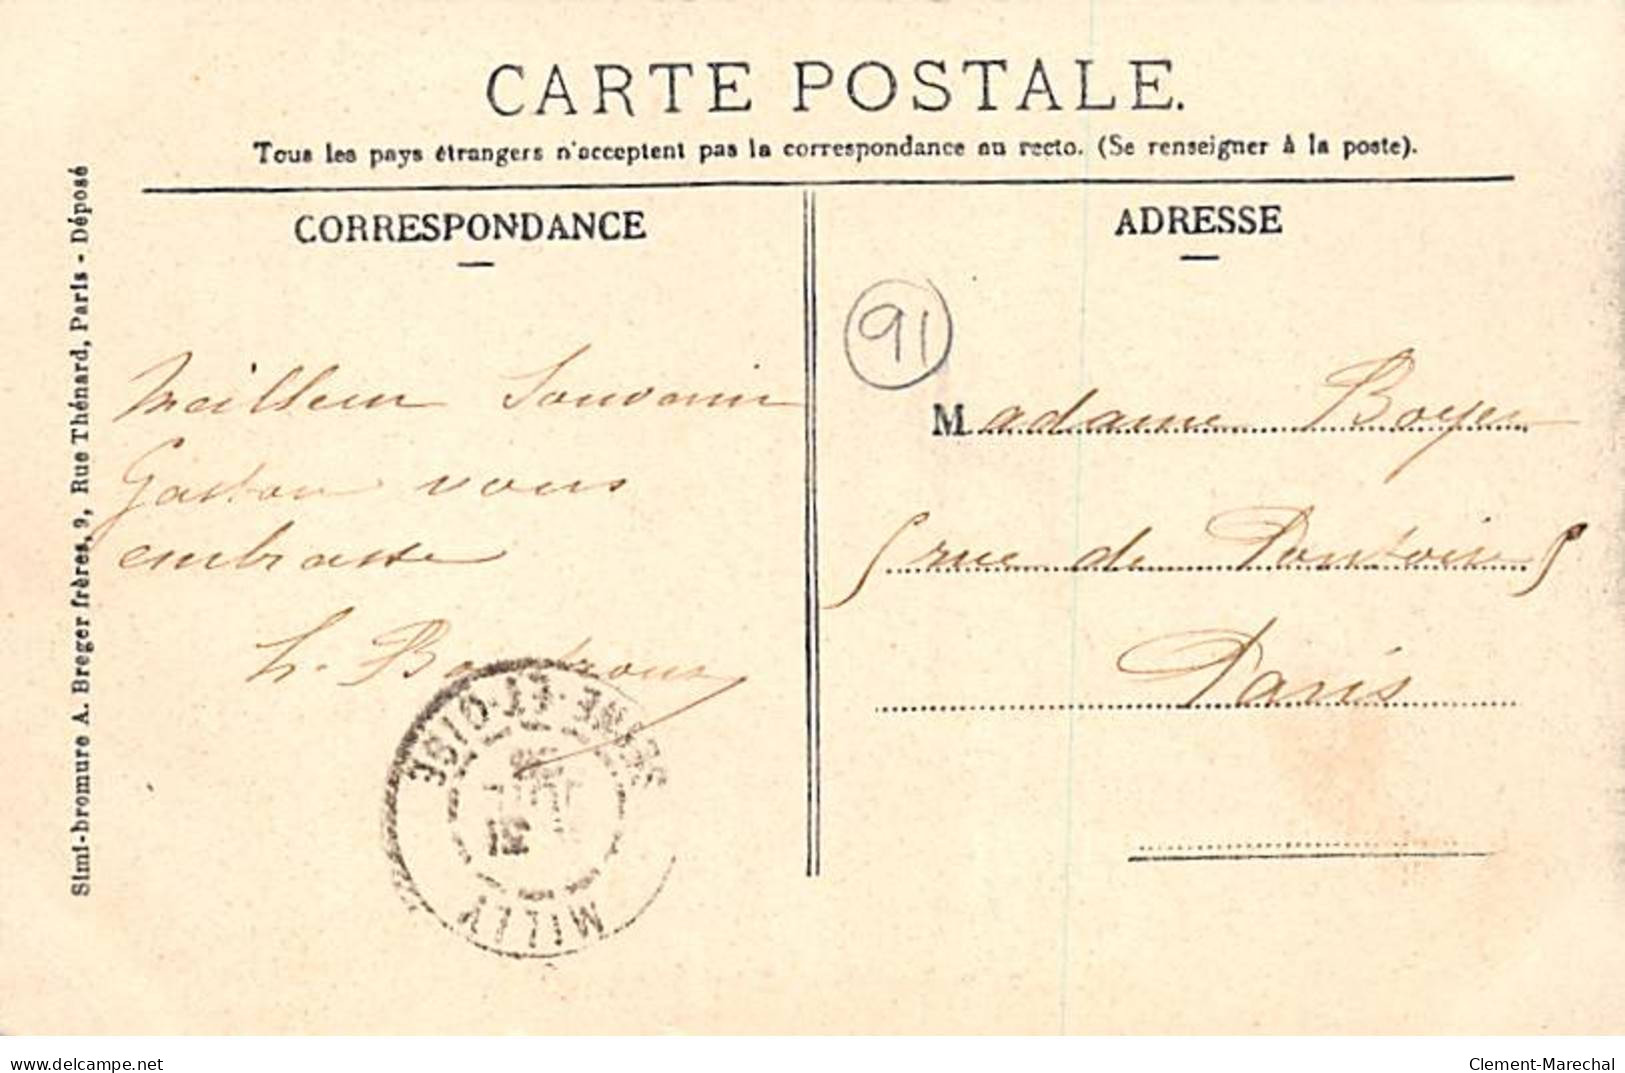 CARTE POSTALE.
Tous les pays étrangers n'acceptent pas la correspondance au recto. (Se renseigner à la poste).
CORRESPONDANCE
ADRESSE
Simi-bromure A. Breger frères, 9, Rue Thénard, Paris - Déposé
Meilleur Souvenir
Gaston vous
embrasse
91
Madame Boyer
5 rue de Pontoise
Paris
SEINE-ET-OISE
MILLY
delcampe.net
Clement-Marechal